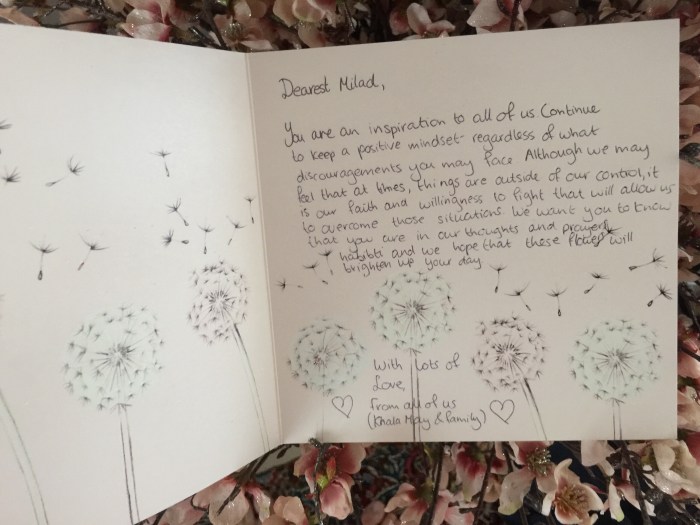 Dearest Milad,
You are an inspiration to all of us Continue
to keep a positive mindset regardless of what
discouragements you may face Although we may
feel that at times, things are outside of our control, it
is our faith and willingness to fight that will allow us
to overcome those situations. We want you to know
that you are in our thoughts and prayers
habibti and we hope that these flowers will
brighten up your day
With lots of
Love,
From all of us
(Khala May & family)